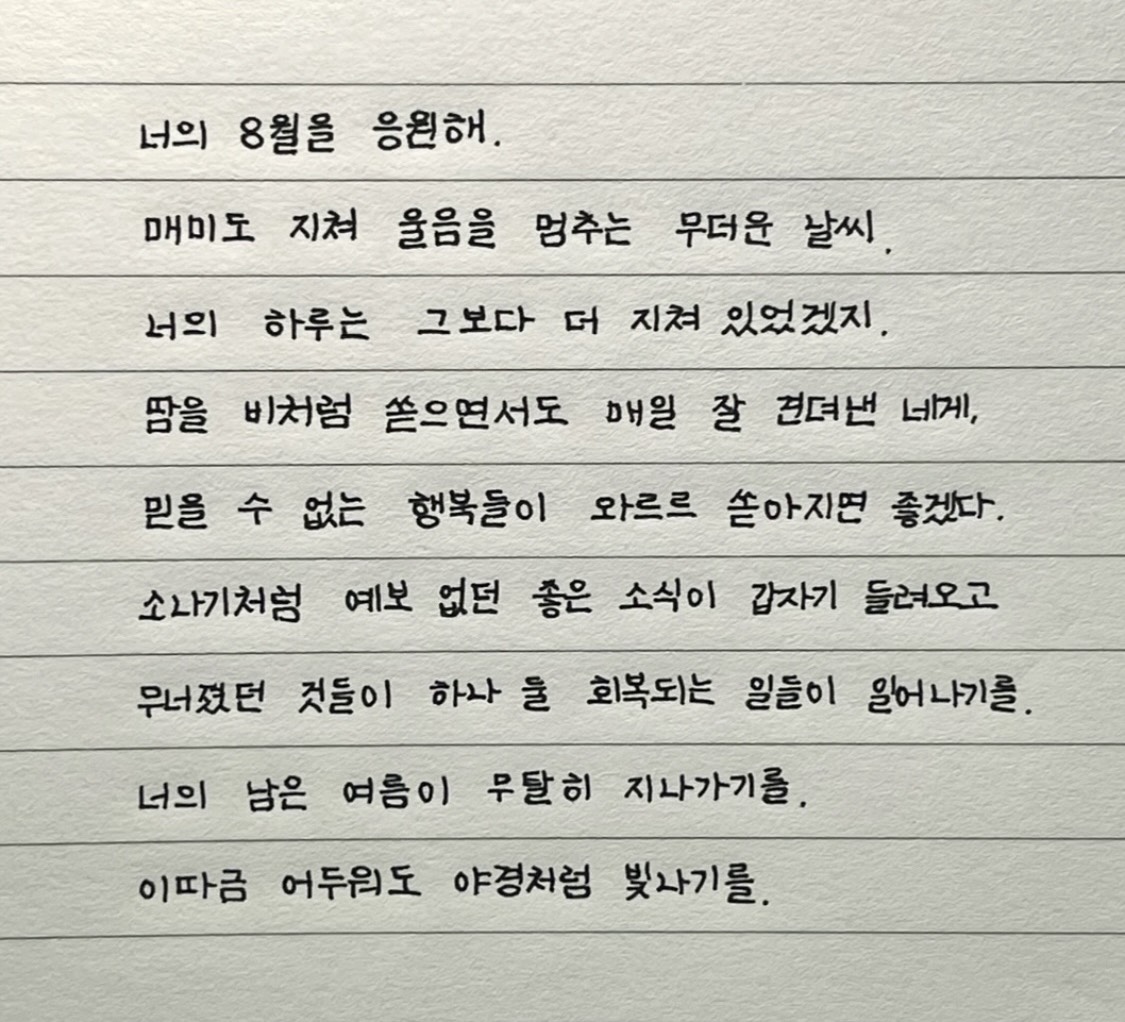 너의 8월을 응원해.
매미도 지쳐 울음을 멈추는 무더운 날씨.
너의 하루는 그보다 더 지쳐 있었겠지.
땀을 비처럼 쏟으면서도 매일 잘 견뎌낸 네게,
믿을 수 없는 행복들이 와르르 쏟아지면 좋겠다.
소나기처럼 예보 없던 좋은 소식이 갑자기 들려오고
무너졌던 것들이 하나 둘 회복되는 일들이 일어나기를.
너의 남은 여름이 무탈히 지나가기를.
이따금 어두워도 야경처럼 빛나기를.